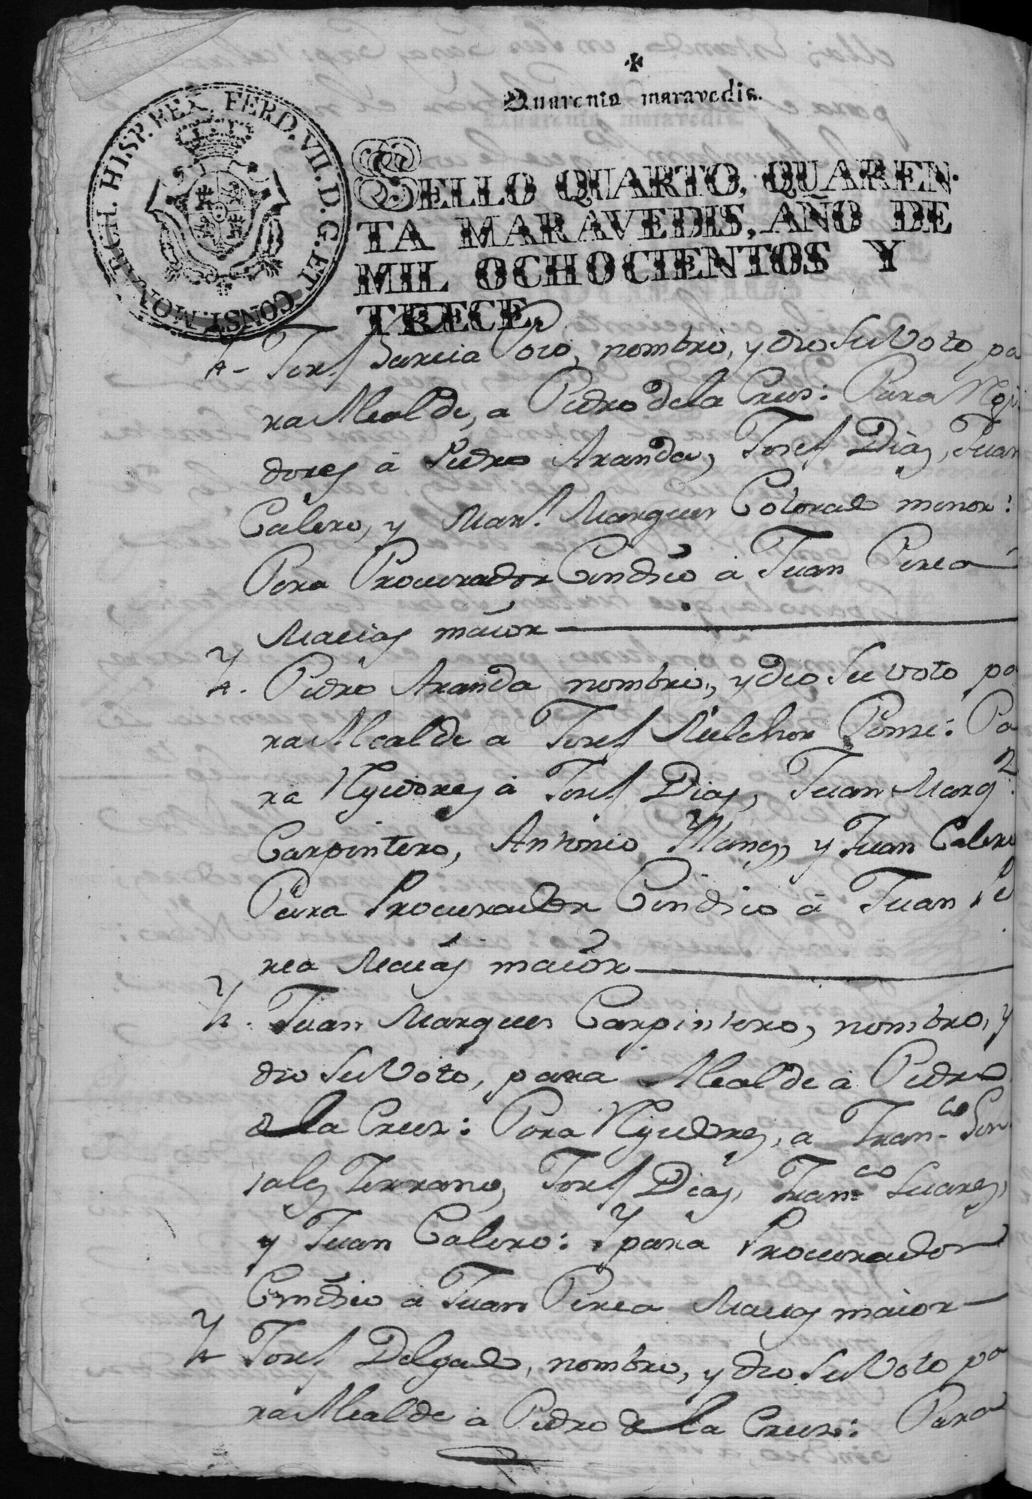 Quarenta maravedis.
HISP. REX FERD. VII. D. G. ET CONST. MONARCH.
SELLO QUARTO, QUAREN-
TA MARAVEDIS, AÑO DE
MIL OCHOCIENTOS Y
TRECE.
Josef Garcia Poso, nombro, y dio Su Voto pa
ra Alcalde, a Pedro dela Crus: Para Reji
dores à Pedro Aranda, Josef Dias, Juan
Calero, y Man.l Marques Colorado menor:
Para Procurador Cindico a Juan Perea
Macias maior
Pedro Aranda nombro, y dio Su voto pa
ra Alcalde a Josef Melchor Ponse: Pa
ra Rejidores à Josef Dias, Juan Marq.z
Carpintero, Antonio Llanes y Juan Calero
Para Procurador Cindico à Juan Pe
rea Macias maior
Juan Marques Carpintero, nombro, y
dio Su Voto, para Alcalde à Pedro
de la Crus: Para Rejidores, a Fran.co Gon
sales Terrano, Josef Dias, Fran.co Suares,
y Juan Calero: Y para Procurador
Cindico a Juan Perea Macias maior
Josef Delgado, nombro, y dio Su Voto pa
ra Alcalde a Pedro de la Crus: Para